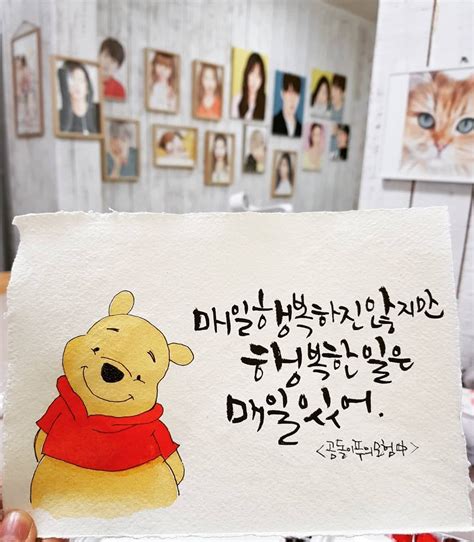 매일 행복하진 않지만
행복한 일은
매일 있어.
<곰돌이 푸의 모험 中>